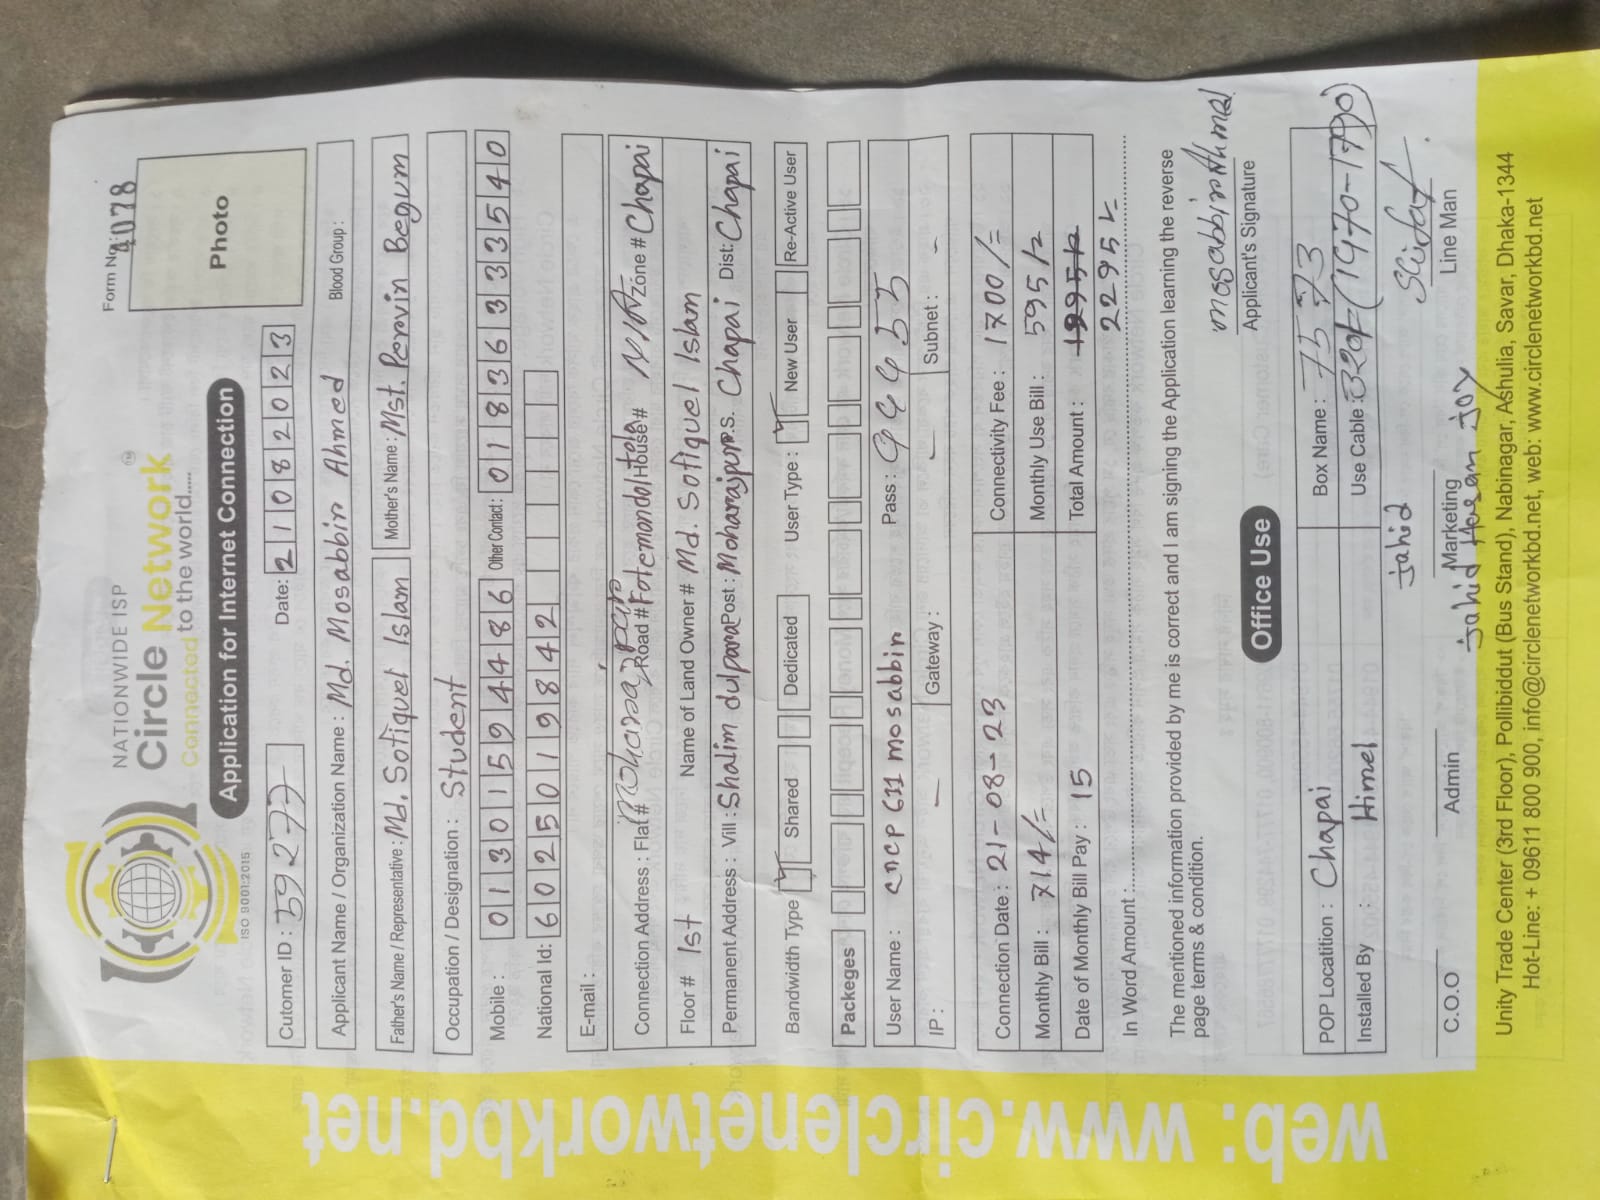 NATIONWIDE ISP
Circle Network™
Connected to the world......
ISO 9001:2015
Form No: 4078
Photo
Application for Internet Connection
Cutomer ID : 59277 Date: 21082023
Applicant Name / Organization Name : Md. Mosabbin Ahmed Blood Group :
Father's Name / Representative : Md. Sofiquel Islam Mother's Name : Mst. Pervin Begum
Occupation / Designation : Student
Mobile : 01301594486 Other Contact : 01836333540
National Id: 6025019842
E-mail :
Connection Address : Flat # Road # House # N/A Zone # Chapai
Floor # 1st Name of Land Owner # Md. Sofiquel Islam
Permanent Address : Vill : Shalim dulpara Post : Moharajpur P.S. Chapai Dist: Chapai
Bandwidth Type Shared Dedicated User Type : New User Re-Active User
Packeges
User Name : cncp 611 mosabbin Pass :
IP : - Gateway : - Subnet : -
Connection Date : 21-08-23 Connectivity Fee : 1700/=
Monthly Bill : 714/= Monthly Use Bill : 595/=
Date of Monthly Bill Pay : 15 Total Amount : 2295/=
In Word Amount :
The mentioned information provided by me is correct and I am signing the Application learning the reverse
page terms & condition.
mosabbin Ahmed
Applicant's Signature
Office Use
POP Locattion : Chapai Box Name : 7573
Installed By : Himel Use Cable : 320f (1470-1790)
jahid
C.O.O Admin Marketing Line Man
jahid Hasan joy
Unity Trade Center (3rd Floor), Pollibiddut (Bus Stand), Nabinagar, Ashulia, Savar, Dhaka-1344
Hot-Line: + 09611 800 900, info@circlenetworkbd.net, web: www.circlenetworkbd.net
web: www.circlenetworkbd.net